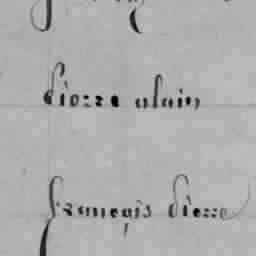 pierre alain
françois pierre